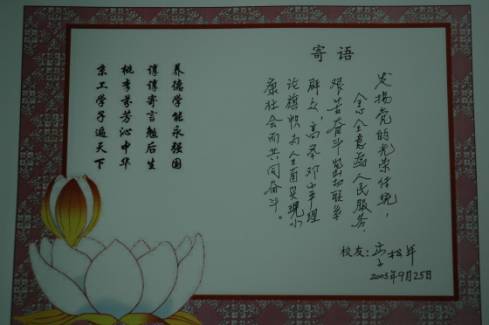 寄语
发扬党的光荣传统，
全心全意为人民服务，
艰苦奋斗密切联系
群众，高举邓小平理
论旗帜为全面实现小
康社会而共同奋斗。
校友：松年
2003年9月25日
养德学能永强国
谆谆寄言勉后生
桃李芬芳沁中华
京工学子遍天下